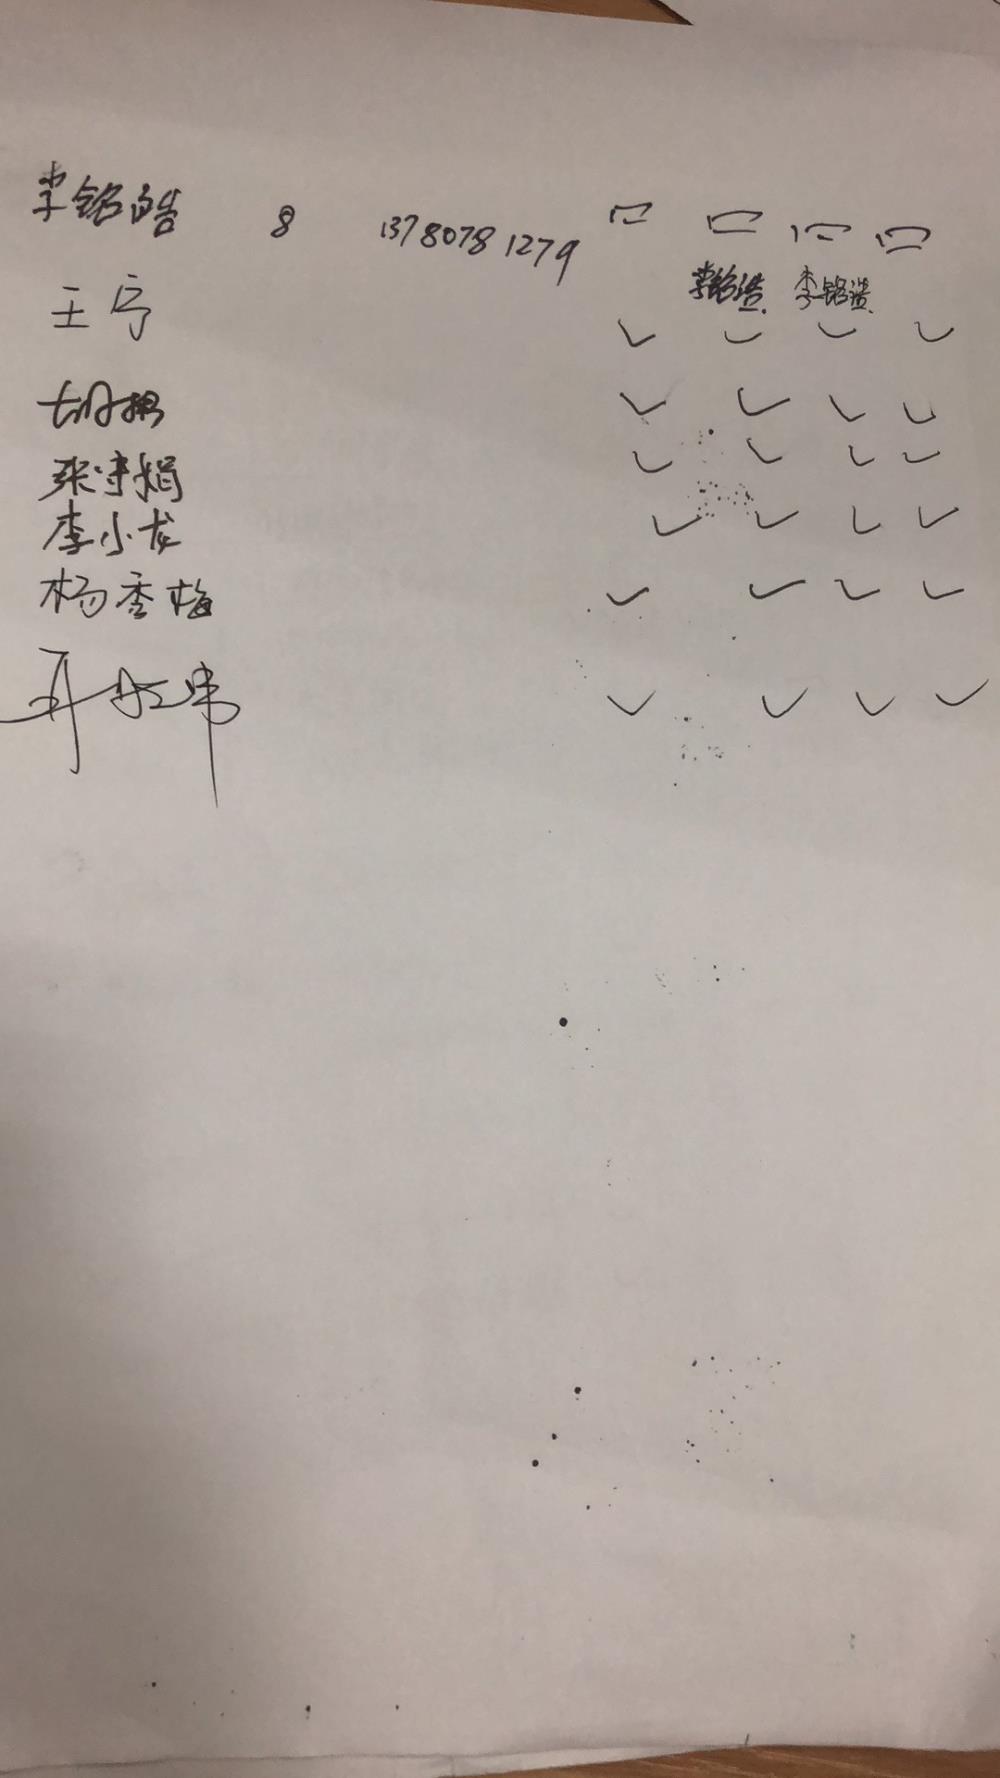 李铭皓 8 13780781279
李铭浩 李铭浩
王宁 ✓ ✓ ✓ ✓
胡 ✓ ✓ ✓ ✓
张守娟 ✓ ✓ ✓ ✓
李小龙 ✓ ✓ ✓ ✓
杨秀梅 ✓ ✓ ✓ ✓
✓ ✓ ✓ ✓